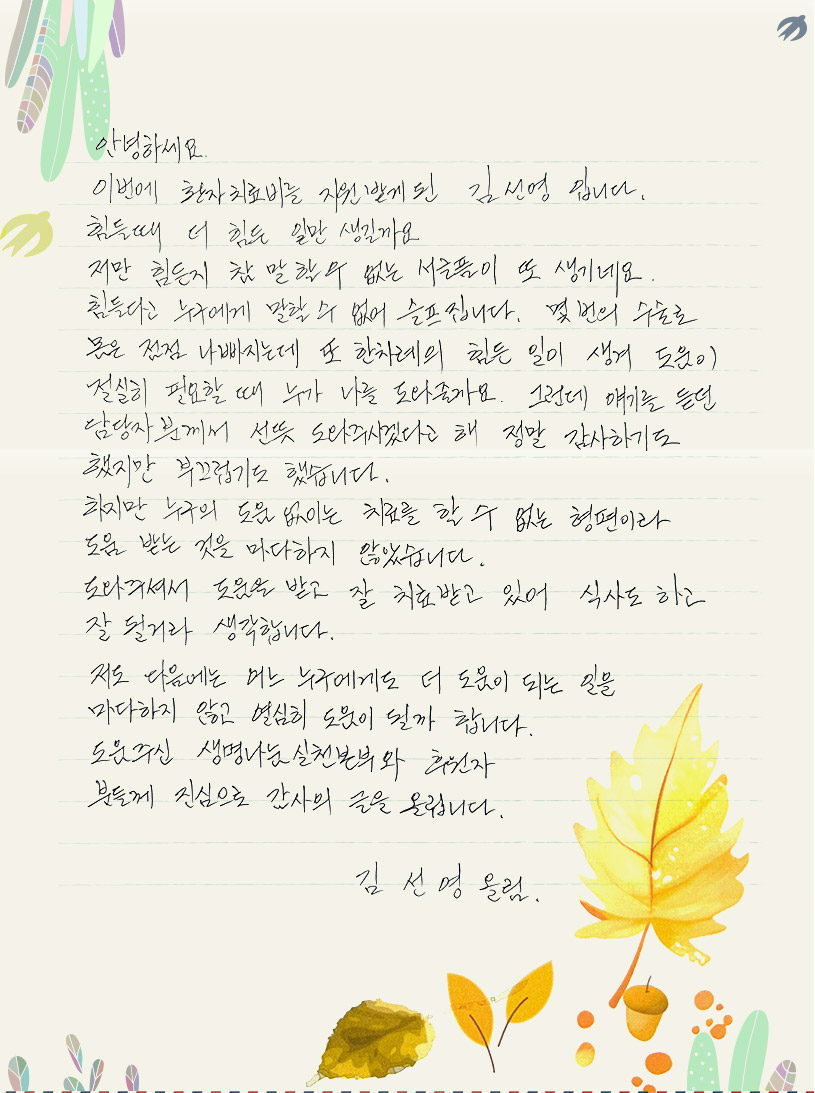 안녕하세요.
이번에 환자치료비를 지원받게된 김선영 입니다.
힘들때 더 힘든 일만 생길까요
저만 힘든지 참 말할수 없는 서글픔이 또 생기네요.
힘들다고 누구에게 말할 수 없어 슬프집니다. 몇 번의 수술로
몸은 점점 나빠지는데 또 한차례의 힘든 일이 생겨 도움이
절실히 필요할 때 누가 나를 도와줄까요. 그런데 얘기를 듣던
담당자분께서 선뜻 도와주시겠다고 해 정말 감사하기도
했지만 부끄럽기도 했습니다.
하지만 누구의 도움 없이는 치료를 할 수 없는 형편이라
도움 받는 것을 마다하지 않았습니다.
도와주셔서 도움을 받고 잘 치료받고 있어 식사도 하고
잘 될거라 생각합니다.
저도 다음에는 어느 누구에게도 더 도움이 되는 일을
마다하지 않고 열심히 도움이 될까 합니다.
도움주신 생명나눔실천본부와 후원자
분들께 진심으로 감사의 글을 올립니다.
김 선 영 올림.